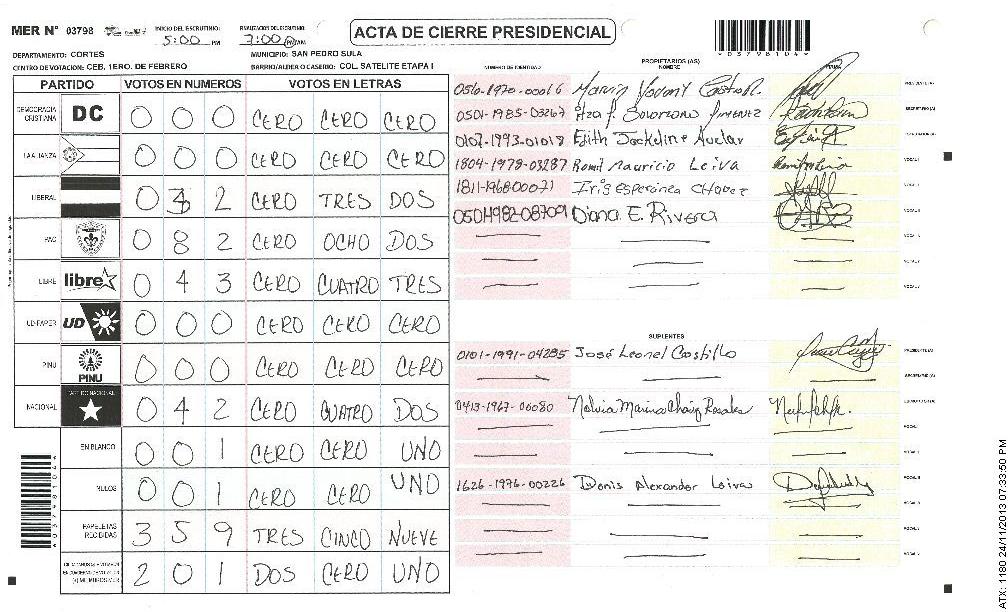 MER N° 03798
INICIO DEL ESCRUTINIO: 5:00 PM
FINALIZACION DEL ESCRUTINIO: 7:00 PM AM
ACTA DE CIERRE PRESIDENCIAL
*03798104*
DEPARTAMENTO: CORTES
MUNICIPIO: SAN PEDRO SULA
CENTRO DE VOTACION: CEB. 1ERO. DE FEBRERO
BARRIO/ALDEA O CASERIO: COL SATELITE ETAPA I
PARTIDO VOTOS EN NUMEROS VOTOS EN LETRAS
DEMOCRACIA CRISTIANA DC 0 0 0 CERO CERO CERO
LA ALIANZA 0 0 0 CERO CERO CERO
LIBERAL 0 3 2 CERO TRES DOS
PAC 0 8 2 CERO OCHO DOS
LIBRE libre 0 4 3 CERO CUATRO TRES
UD-FAPER UD 0 0 0 CERO CERO CERO
PINU PINU 0 0 0 CERO CERO CERO
NACIONAL PARTIDO NACIONAL 0 4 2 CERO CUATRO DOS
EN BLANCO 0 0 1 CERO CERO UNO
NULOS 0 0 1 CERO CERO UNO
PAPELETAS RECIBIDAS 3 5 9 TRES CINCO NUEVE
2 0 1 DOS CERO UNO
*03798104*
NUMERO DE IDENTIDAD
PROPIETARIOS (AS)
NOMBRE
FIRMA
PRESIDENTE(A)
0501-1985-03267 SECRETARIO(A)
0107-1993-01018 Edith Jackeline Avelar
1804-1978-03287 Romil Mauricio Leiva VOCAL I
1811-1968-00071 Iris Esperanza Chavez
0504-1982-08709 Diana E. Rivera
SUPLENTES
0101-1991-04285 José Leonel Castillo PRESIDENTE(A)
SECRETARIO(A)
0413-1967-00080
1626-1976-00226 Donis Alexander Leiva
ATX: 1180 24/11/2013 07:33:50 PM